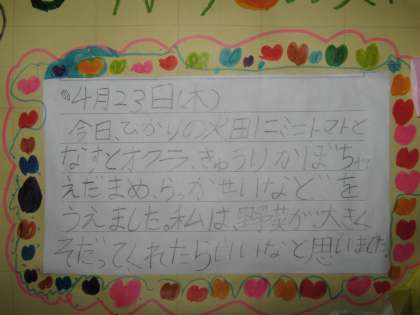 4月23日(木)
今日、ひかりの火田にミニトマトと
なすとオクラ、きゅうり、かぼちゃ、
えだまめ、らっかせいなどを
うえました。私は、野菜が大きく
そだってくれたらいいなと思いました。